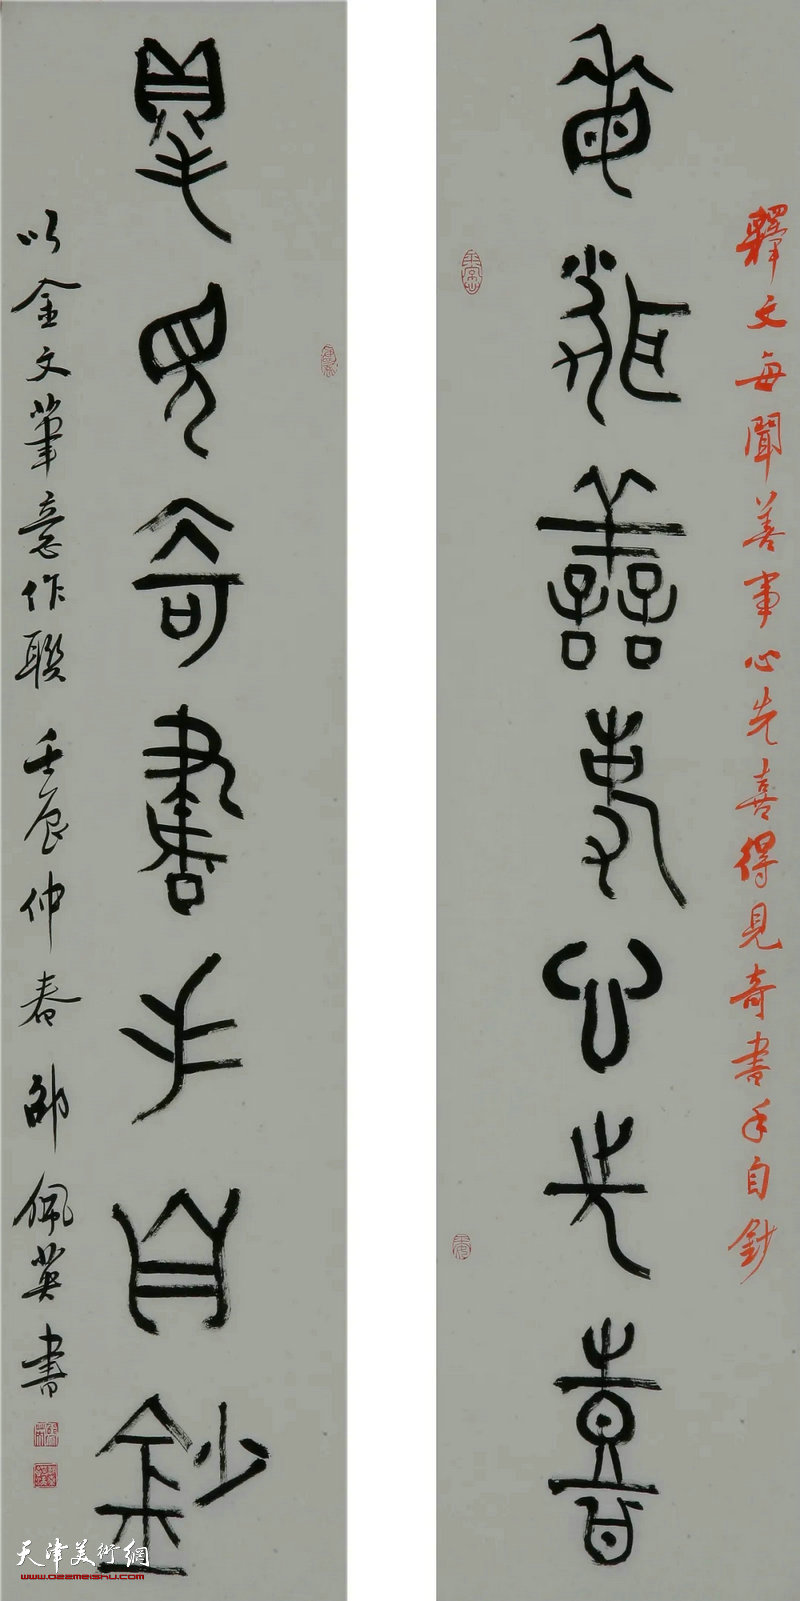 釋文每聞善事心先喜得見奇書手自鈔
每聞善事心先喜
得見奇書手自鈔
以金文筆意作聯 壬辰仲春 邵佩英書
天津美術網